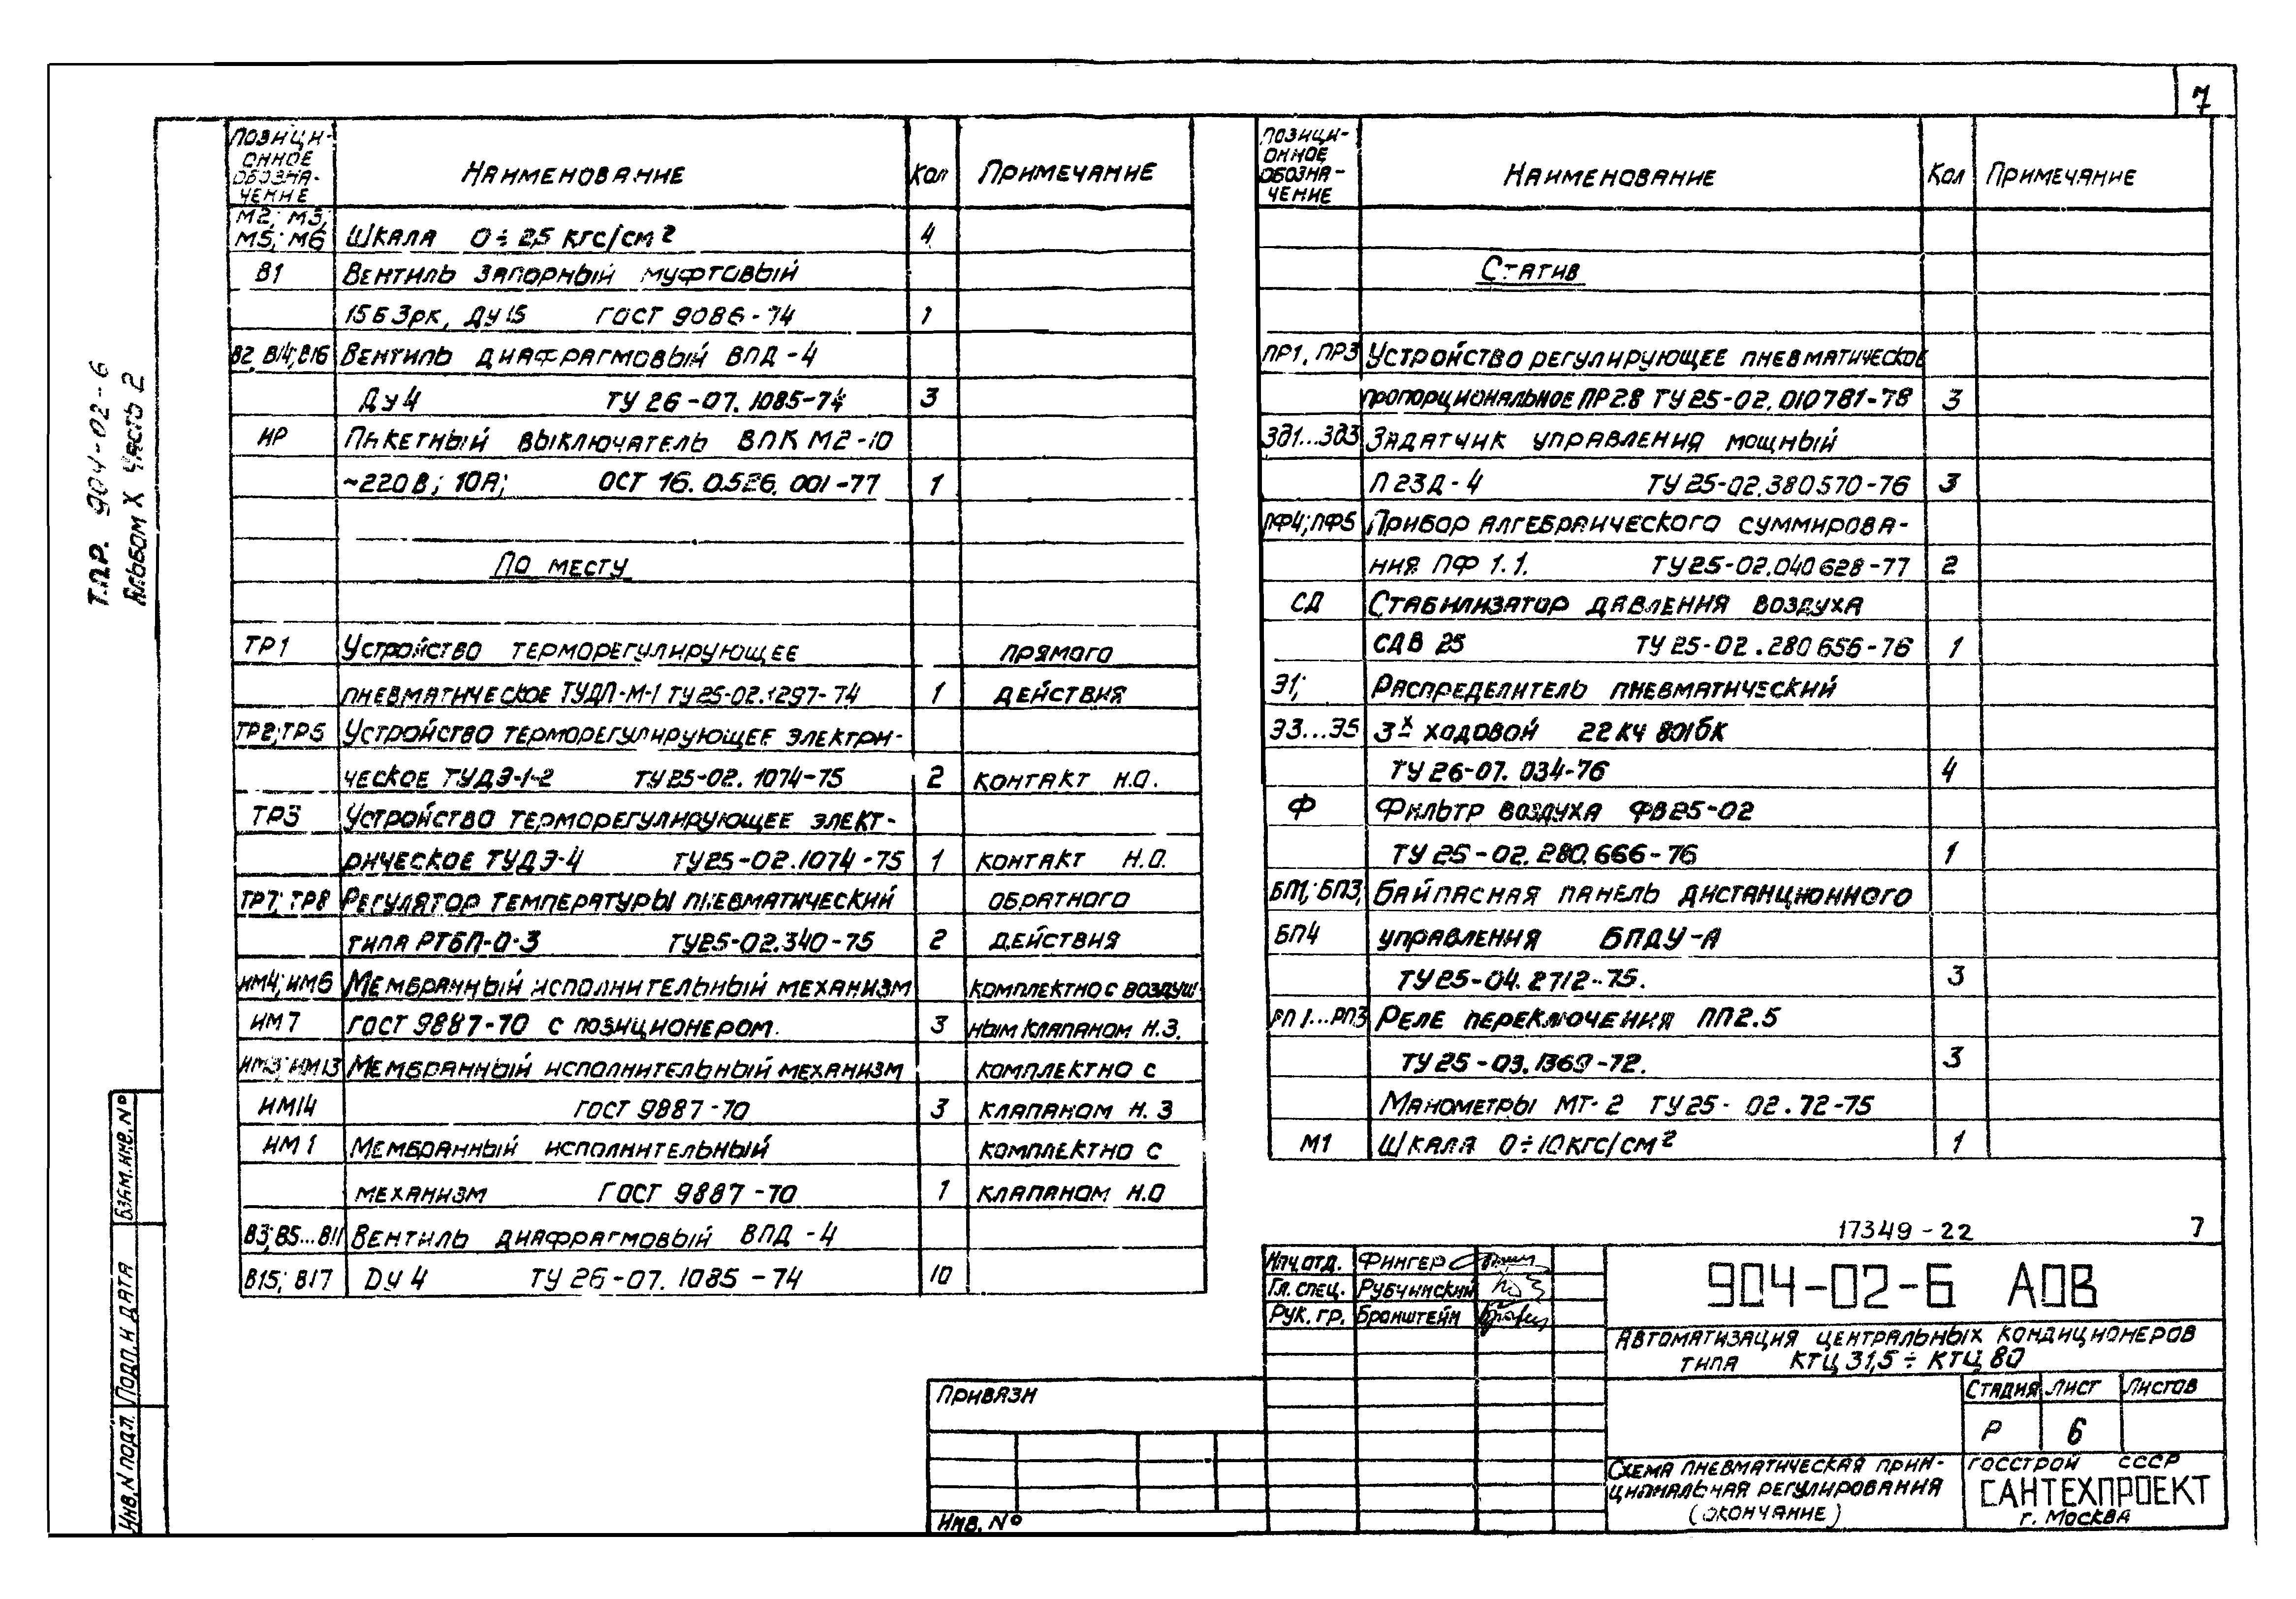 7
Т.П.Р. 904-02-6
Альбом X Часть 2
Позици-
онное
обозна-
чение
Наименование
Кол
Примечание
М2; М3;
М5; М6 Шкала 0÷2,5 кгс/см² 4
В1 Вентиль запорный муфтовый
15Б3рк, Ду15 ГОСТ 9086-74 1
В2, В14; В16 Вентиль диафрагмовый ВПД-4
Ду 4 ТУ 26-07.1085-74 3
ИР Пакетный выключатель ВПК М2-10
~220В; 10А; ОСТ 16.0.526.001-77 1
По месту
ТР1 Устройство терморегулирующее прямого
пневматическое ТУДП-М-1 ТУ25-02.1297-74 1 действия
ТР2; ТР5 Устройство терморегулирующее электри-
ческое ТУДЭ-1-2 ТУ25-02.1074-75 2 контакт Н.О.
ТР3 Устройство терморегулирующее элект-
рическое ТУДЭ-4 ТУ25-02.1074-75 1 контакт Н.О.
ТР7; ТР8 Регулятор температуры пневматический обратного
типа РТБП-О-3 ТУ25-02.340-75 2 действия
ИМ4; ИМ6 Мембранный исполнительный механизм комплектно с воздуш-
ИМ7 ГОСТ 9887-70 с позиционером. 3 ным клапаном Н.З.
ИМ3; ИМ13 Мембранный исполнительный механизм комплектно с
ИМ14 ГОСТ 9887-70 3 клапаном Н.З
ИМ1 Мембранный исполнительный комплектно с
механизм ГОСТ 9887-70 1 клапаном Н.О
В3; В5...В11 Вентиль диафрагмовый ВПД-4
В15; В17 Dу 4 ТУ 26-07.1085-74 10
Позици-
онное
обозна-
чение
Наименование
Кол
Примечание
Статив
ПР1, ПР3 Устройство регулирующее пневматическое
пропорциональное ПР2.8 ТУ25-02.010781-78 3
ЗД1...ЗД3 Задатчик управления мощный
П23Д-4 ТУ25-02.380570-76 3
ПФ4; ПФ5 Прибор алгебраического суммирова-
ния ПФ 1.1. ТУ25-02.040628-77 2
СД Стабилизатор давления воздуха
СДВ 25 ТУ25-02.280656-76 1
Э1; Распределитель пневматический
Э3...Э5 3х ходовой 22кч 801бк
ТУ 26-07.034-76 4
Ф Фильтр воздуха ФВ25-02
ТУ 25-02.280.666-76 1
БП1; БП3; Байпасная панель дистанционного
БП4 управления БПДУ-А
ТУ25-04.2712-75. 3
РП1...РП3 Реле переключения ПП2.5
ТУ25-03.1369-72. 3
Манометры МТ-2 ТУ25-02.72-75
М1 Шкала 0÷10кгс/см² 1
17349-22 7
Нач.отд. Фингер
Гл. спец. Рубчинский
Рук. гр. Бронштейн
904-02-6 АОВ
Автоматизация центральных кондиционеров
типа КТЦ 31,5÷КТЦ 80
Стадия Лист Листов
Р 6
Схема пневматическая прин-
ципиальная регулирования
(окончание)
Госстрой СССР
САНТЕХПРОЕКТ
г. Москва
Привязан
Инв. №
Взам. инв. №
Подп. и дата
Инв. N подл.